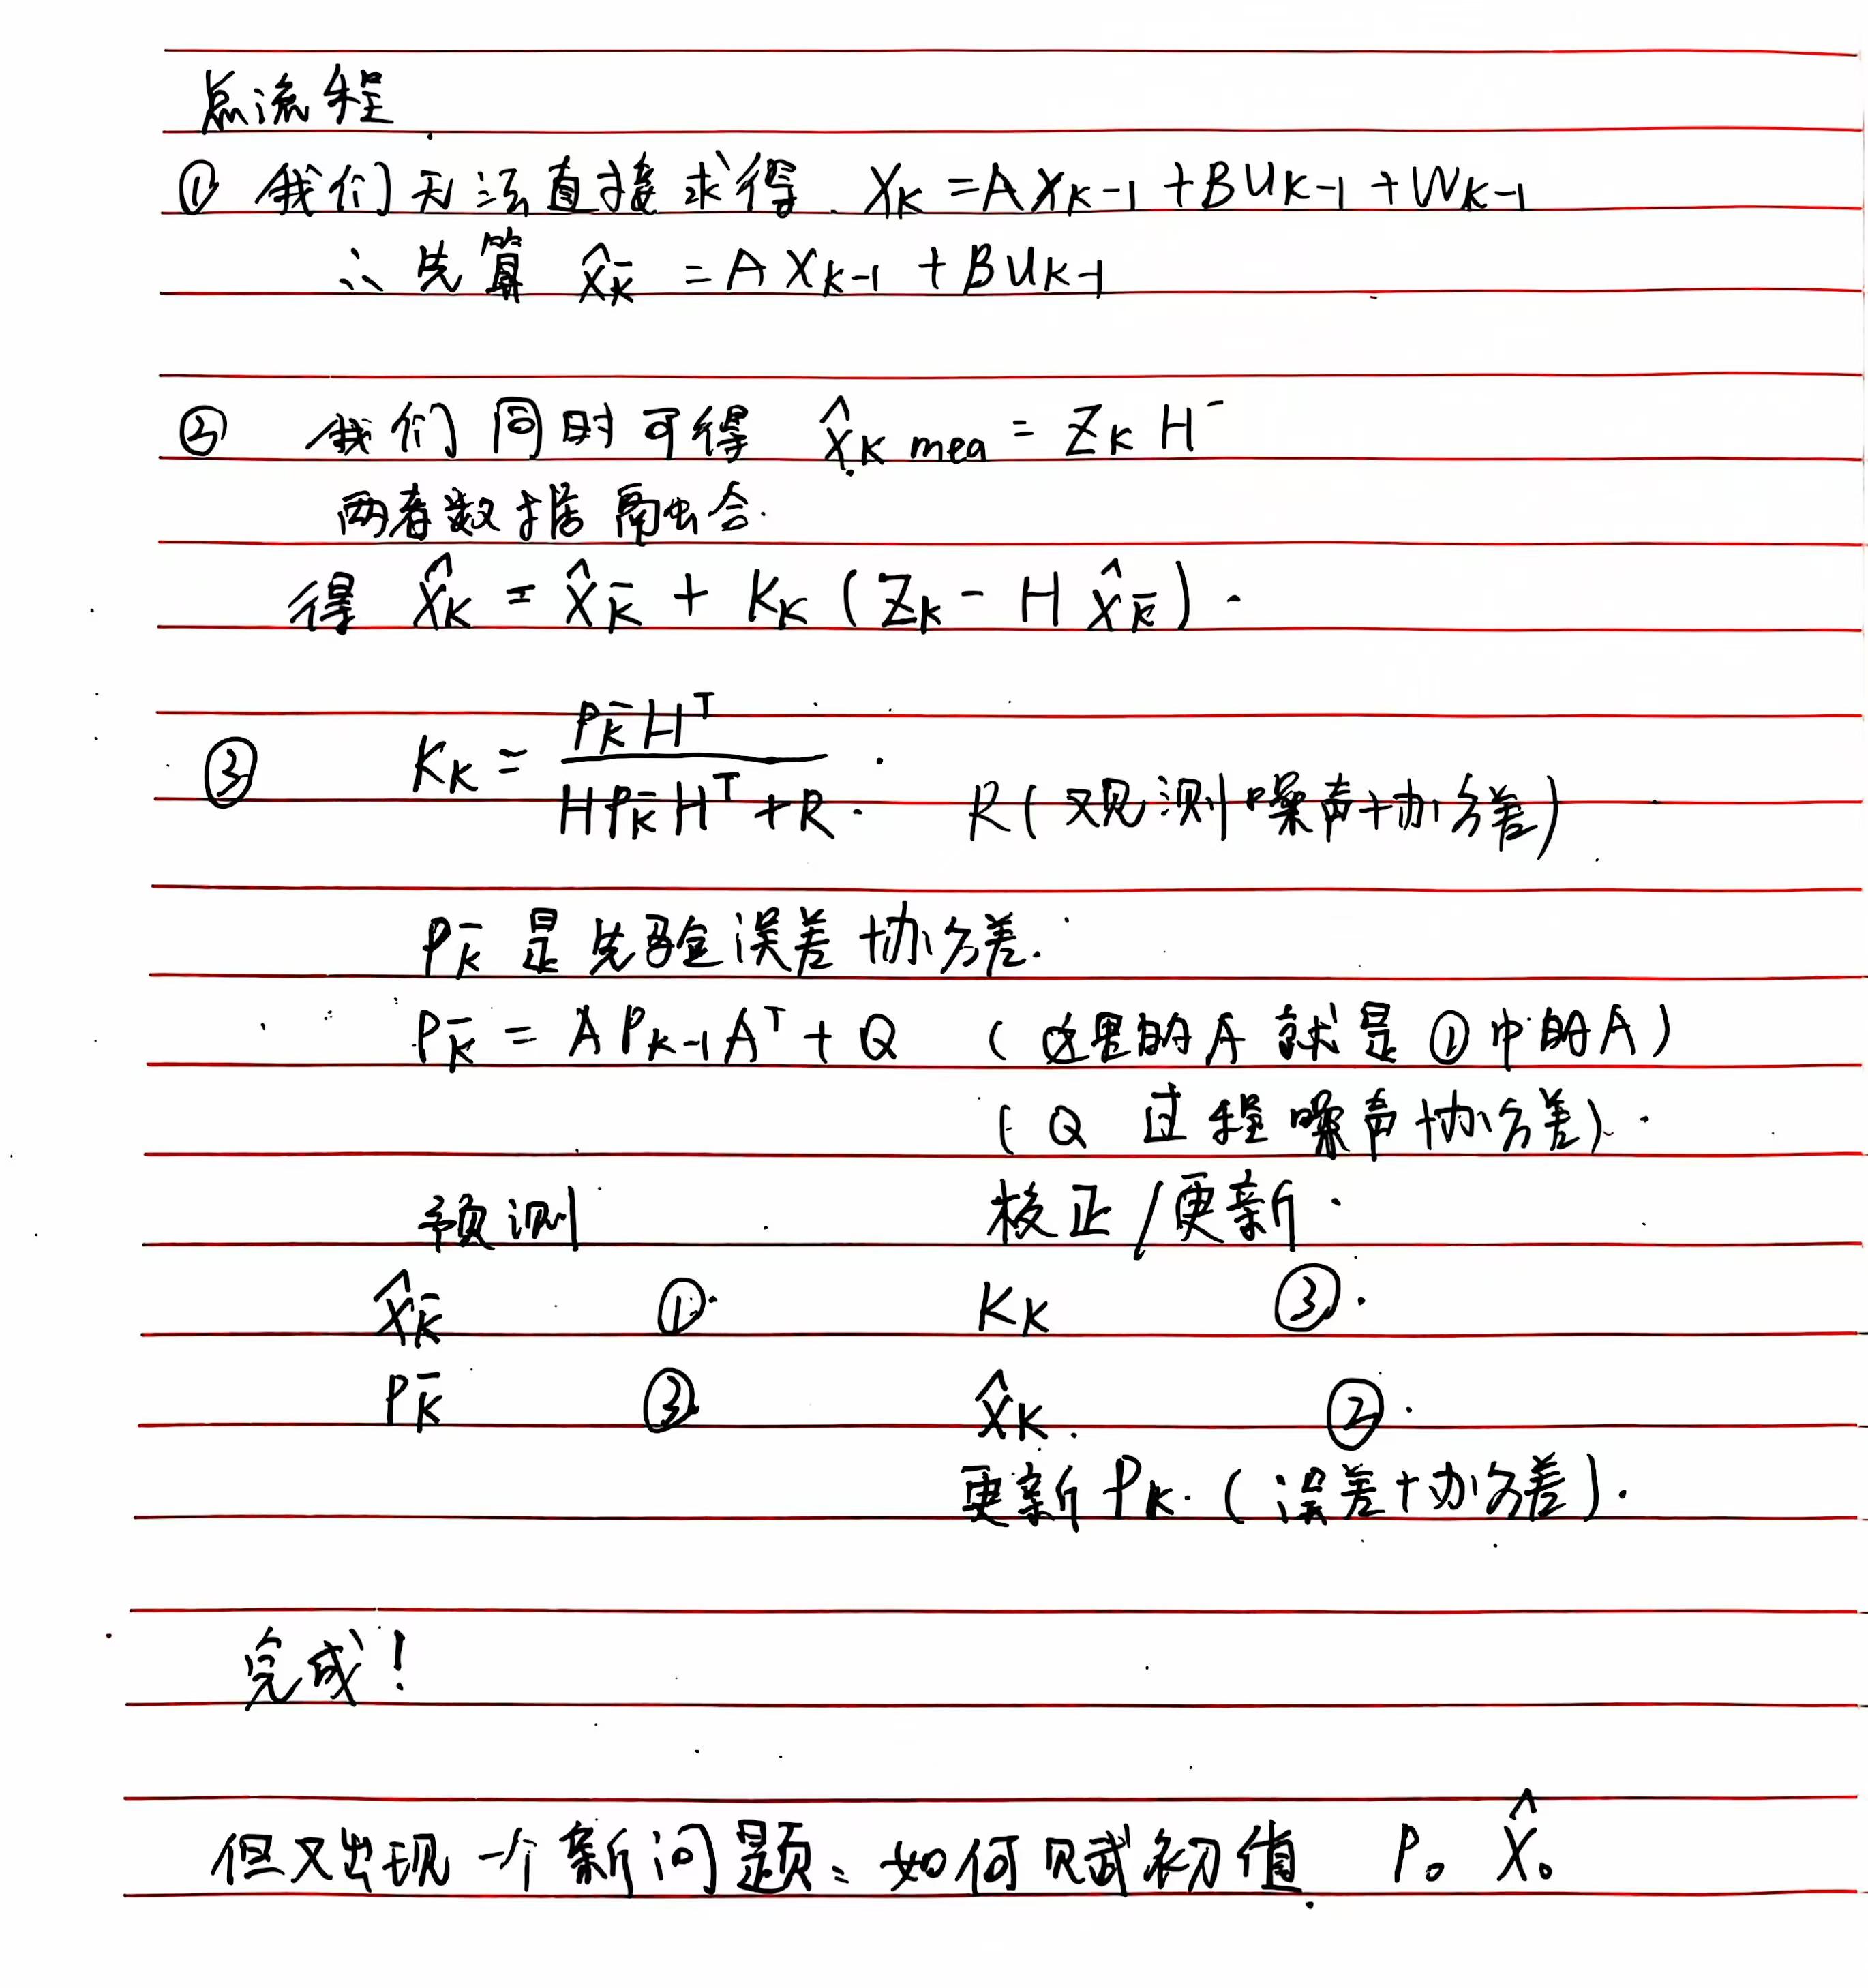 总流程
① 我们无法直接求得 X_K = A X_{K-1} + B U_{K-1} + W_{K-1}
∴ 先算 X̂_K̄ = A X_{K-1} + B U_{K-1}
② 我们同时可得 X̂_{K mea} = Z_K H⁻
两者数据融合.
得 X̂_K = X̂_K̄ + K_K (Z_K - H X̂_K̄).
③ K_K = P_K̄ H^T / (H P_K̄ H^T + R). R(观测噪声协方差)
P_K̄ 是先验误差协方差.
P_K̄ = A P_{K-1} A^T + Q (这里的A 就是 ①中的A)
(Q 过程噪声协方差).
预测 校正/更新.
X̂_K̄ ① K_K ③.
P_K̄ ③ X̂_K. ②.
更新 P_K. (误差协方差).
完成!
但又出现一个新问题: 如何赋初值 P_0 X̂_0